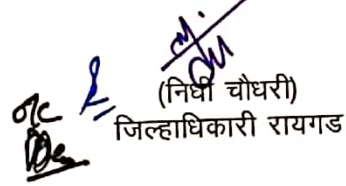 (निधी चौधरी)
जिल्हाधिकारी रायगड